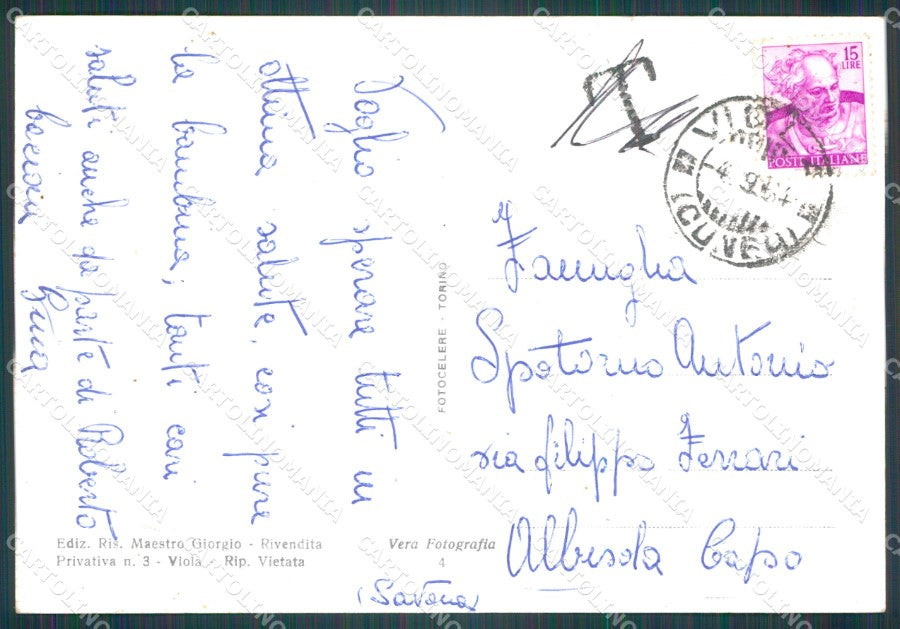 Voglio sperare tutti in
ottima salute, così pure
la bambina; tanti cari
saluti anche da parte di Roberto
bacioni
T
15
LIRE
POSTE ITALIANE
VIOLA
-4.9.64
(CUNEO)
FOTOCELERE - TORINO
Famiglia
Spotorno Antonio
via filippo Ferrari
Albisola Capo
(Savona)
Ediz. Ris. Maestro Giorgio - Rivendita
Privativa n. 3 - Viola - Rip. Vietata
Vera Fotografia
4
CARTOLINOMANIA